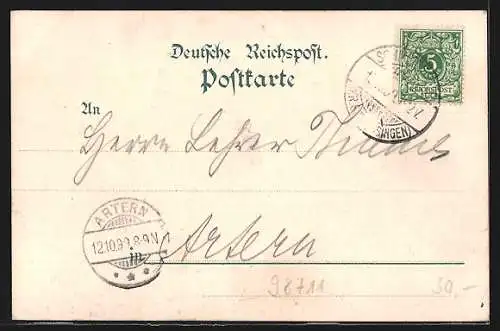 Deutsche Reichspost.
Postkarte
5
REICHSPOST
INGEN)
An
Herrn Lehrer
ARTERN
12.10.99.8-9N.
in Artern
98711
30,-